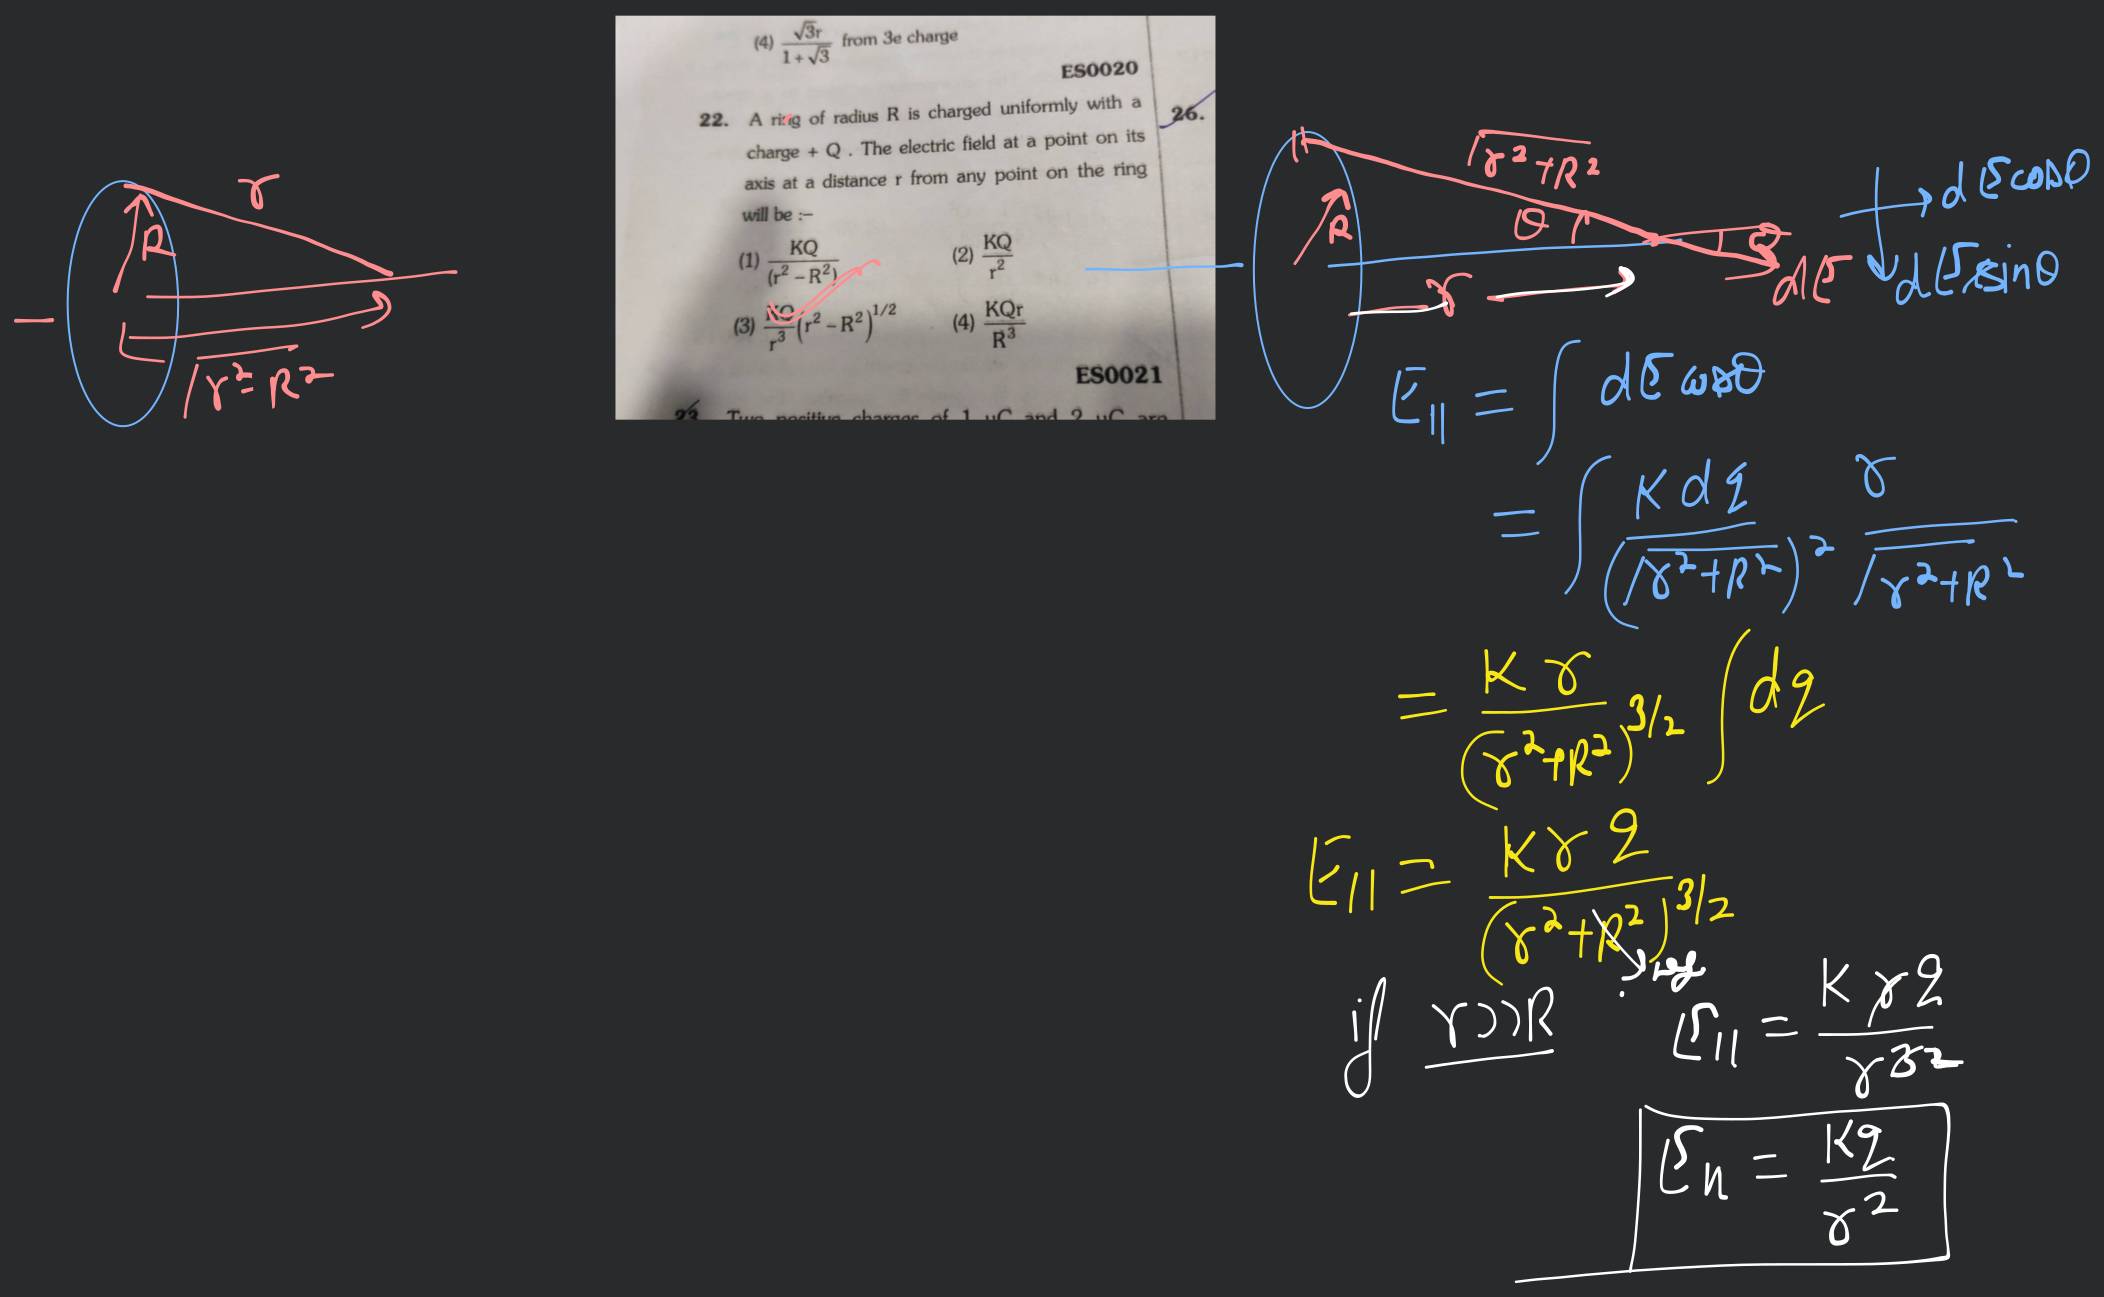 (4) √3r / 1 + √3 from 3e charge
ES0020
22. A ring of radius R is charged uniformly with a
charge + Q . The electric field at a point on its
axis at a distance r from any point on the ring
will be :–
(1) KQ / (r² – R²)
(2) KQ / r²
(3) KQ / r³ (r² – R²)^1/2
(4) KQr / R³
ES0021
23. Two positive charges of 1 μC and 2 μC are
26.
r
R
√r² – R²
√r²+R²
R
θ
θ
r
dE
dE cosθ
dE sinθ
E|| = ∫ dE cosθ
= ∫ K dq / (√r²+R²)² r / √r²+R²
= K r / (r²+R²)^3/2 ∫ dq
E|| = K r q / (r²+R²)^3/2
neg
if r>>R
E|| = K r q / r³ ²
E|| = Kq / r²